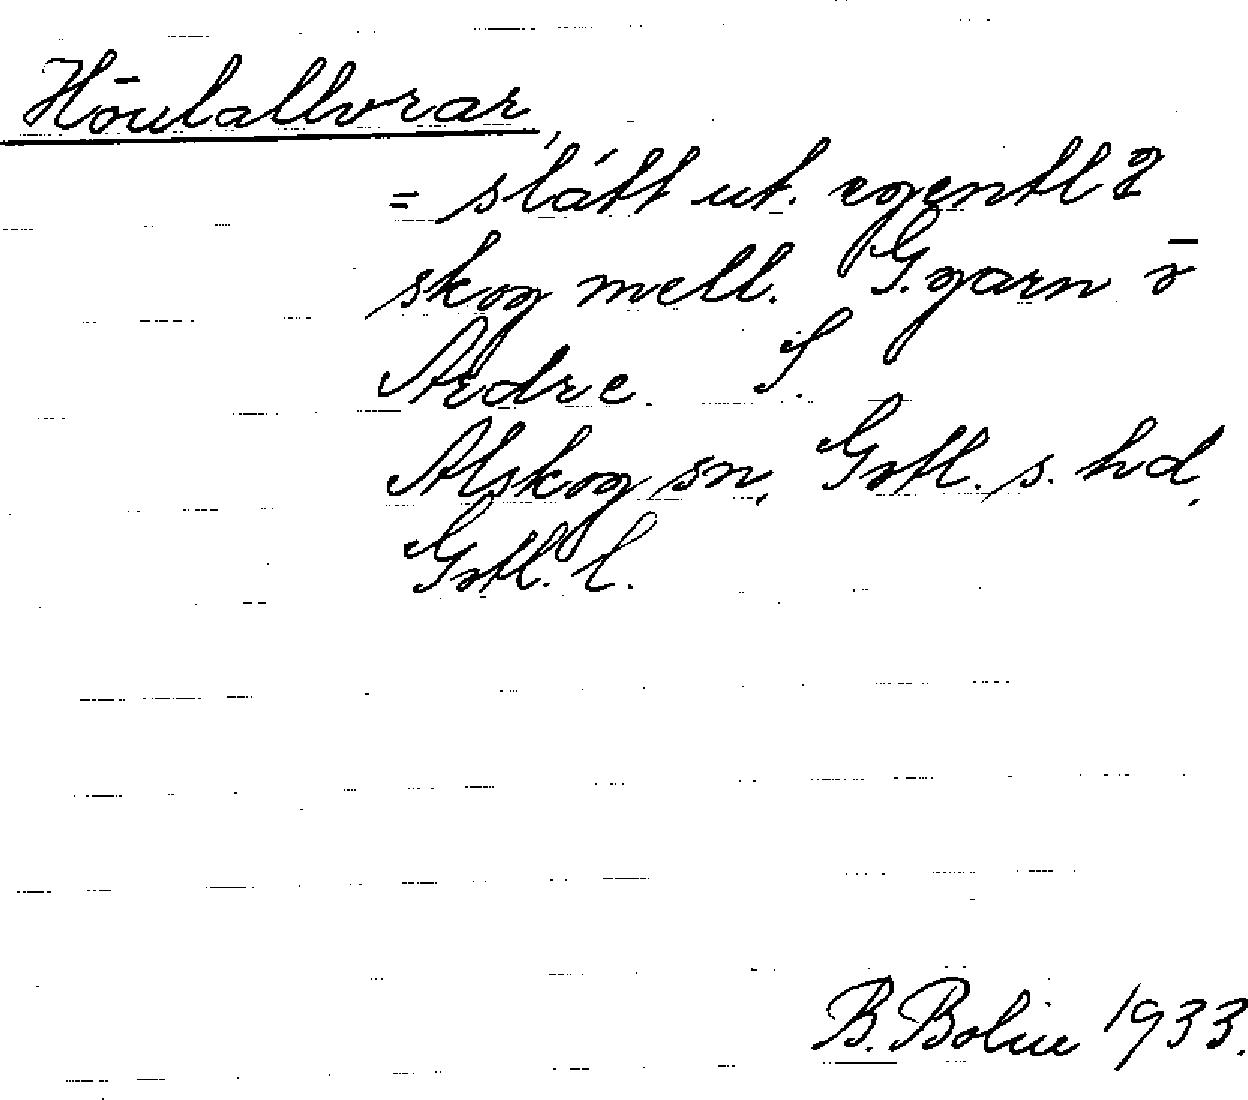 Hōulallvrar,
= slátt ut. egentl
skog mell. G.garn
Ardre. S.
Alskog sn, Gotl. s. hd,
Gotl. l.
B. Bolin 1933.